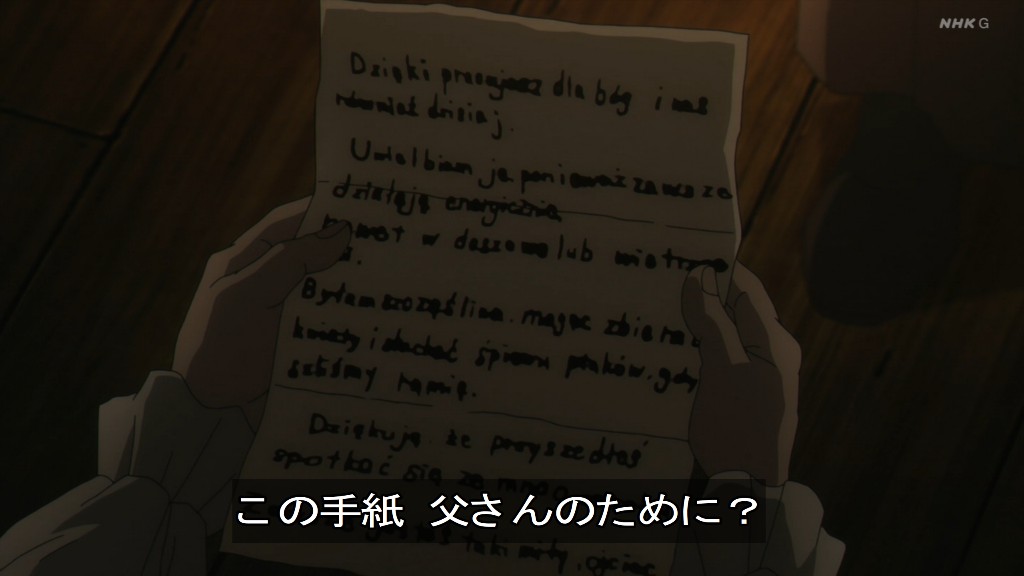 NHK G
Dzięki pracujesz dla bóg i nas
również dzisiaj.
Uwielbiam ja ponieważ zawsze
działają energicznie
nawet w deszowe lub
Byłam szczęśliwa. mogąc
kwiaty i słuchać śpiewu ptaków. gdy
szliśmy ramię.
Dziękują że przyszedłaś
spotkać się ze mną
taki miły, ojciec
この手紙 父さんのために？